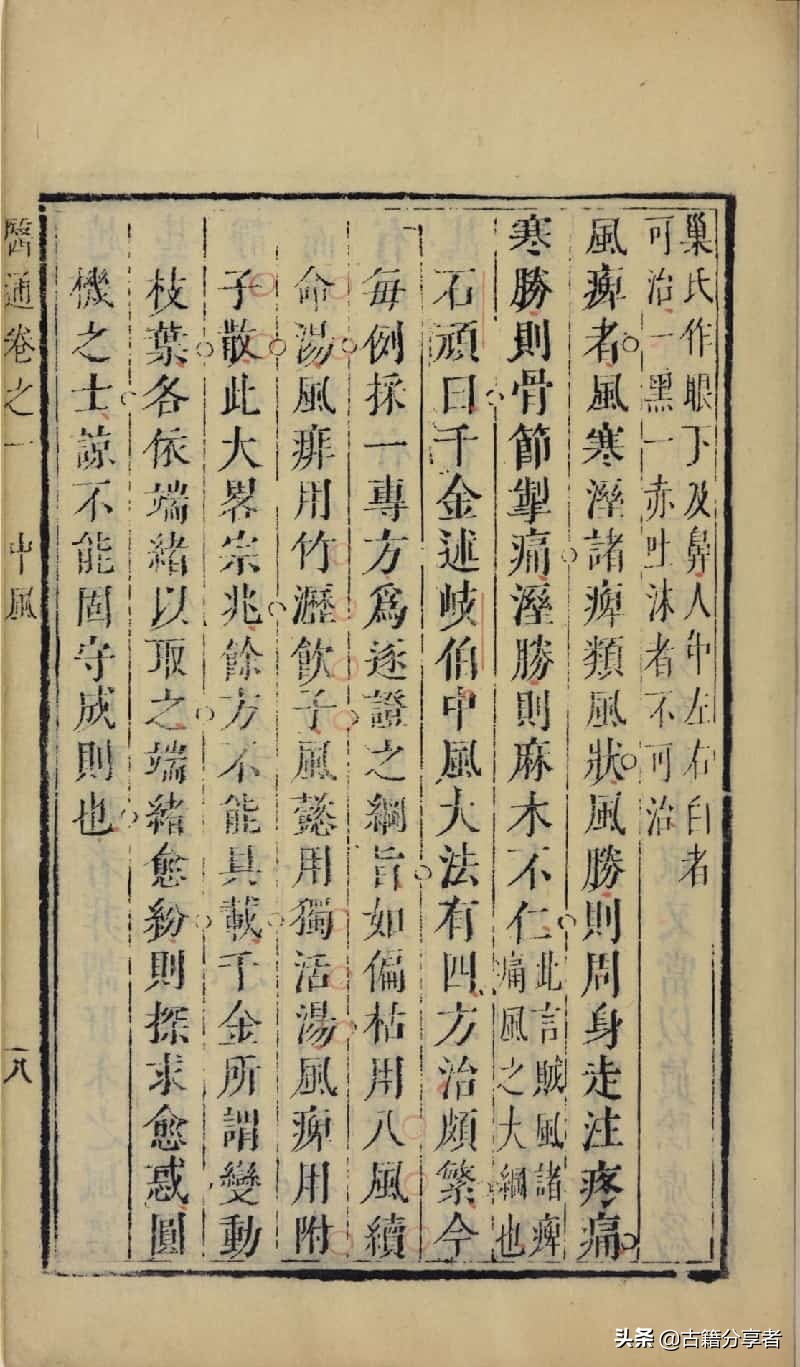 巢氏作眼下及鼻人中左右白者
可治一黑一赤吐沫者不可治
風痺者風寒溼諸痺類風狀風勝則周身走注疼痛
寒勝則骨節掣痛溼勝則麻木不仁此言賊風諸痺
痛風之大綱也
石頑曰千金述岐伯中風大法有四方治頗繁今
每例採一專方爲逐證之綱旨如偏枯用八風續
命湯風痱用竹瀝飲子風懿用獨活湯風痺用附
子散此大畧宗兆餘方不能具載千金所謂變動
枝葉各依端緒以取之端緒愈紛則探求愈惑圓
機之士諒不能固守成則也
醫通卷之一 中風 一八
头条 @古籍分享者